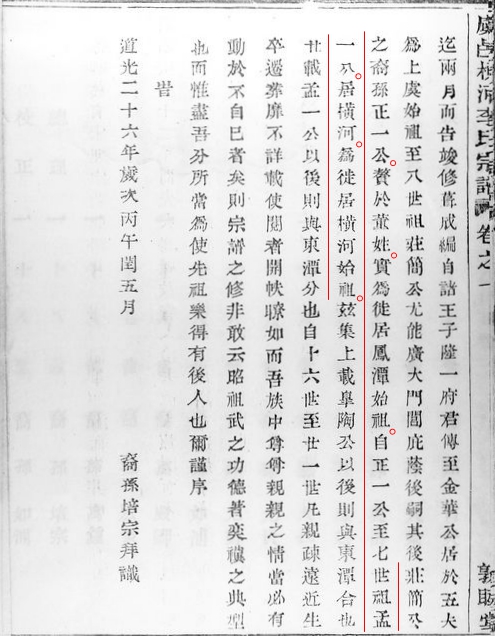 虞邑橫河李氏宗譜卷之一
敦睦堂
迄兩月而告竣修葺成編自諸王子隆一府君傳至金華公居於五夫
爲上虞始祖至八世祖莊簡公尤能廣大門閭庇蔭後嗣其後莊簡公
之裔孫正一公贅於董姓實爲徙居鳳潭始祖自正一公至七世祖孟
一公居橫河爲徙居橫河始祖茲集上載皋陶公以後則與東潭合也
廿載孟一公以後則與東潭分也自十六世至廿一世凡親疎遠近生
卒遷葬靡不詳載使閱者開帙瞭如而吾族中尊尊親親之情當必有
動於不自已者矣則宗譜之修非敢云昭祖武之功德著奕禩之典型
也而惟盡吾分所當爲使先祖樂得有後人也爾謹序
旹
道光二十六年歲次丙午閏五月 裔孫培宗拜識